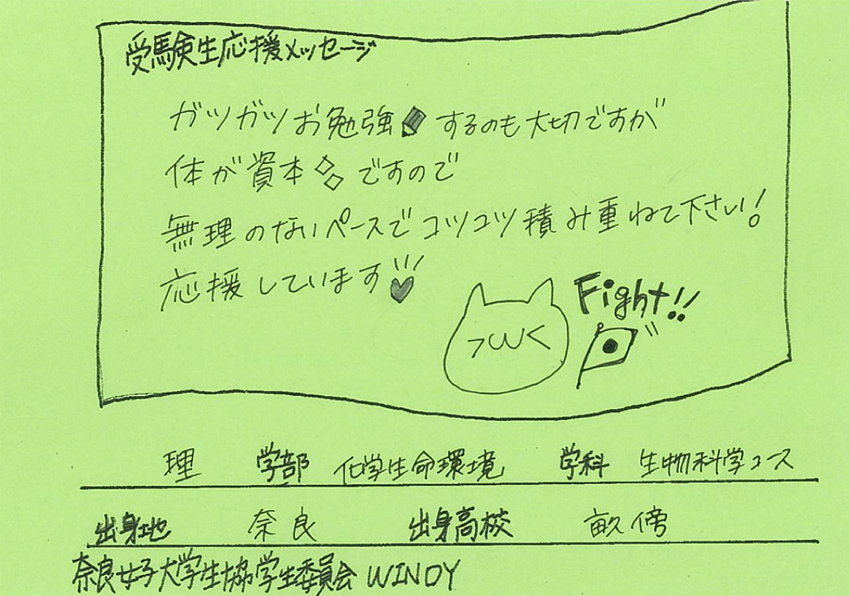 受験生応援メッセージ
ガツガツお勉強するのも大切ですが
体が資本ですので
無理のないペースでコツコツ積み重ねて下さい!
応援しています
Fight!!
理 学部 化学生命環境 学科 生物科学コース
出身地 奈良 出身高校 畝傍
奈良女子大学生協学生委員会 WINDY